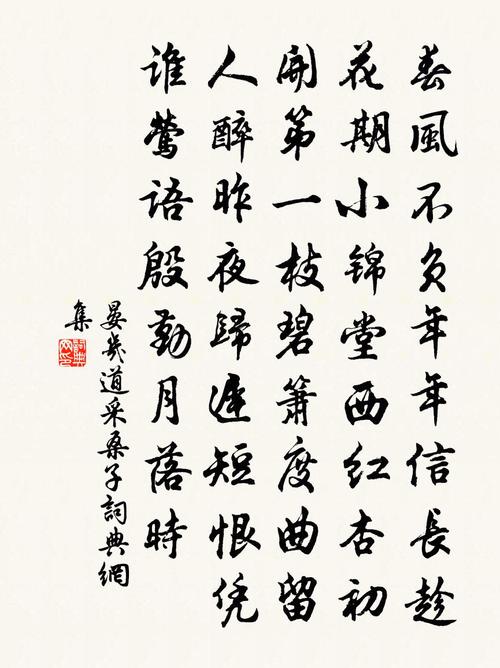 春風不負年年信長趁
花期小锦堂西红杏初
開第一枝碧簫度曲留
人醉昨夜歸遲短恨凭
谁莺语殷勤月落時
晏幾道采桑子詞典網
集